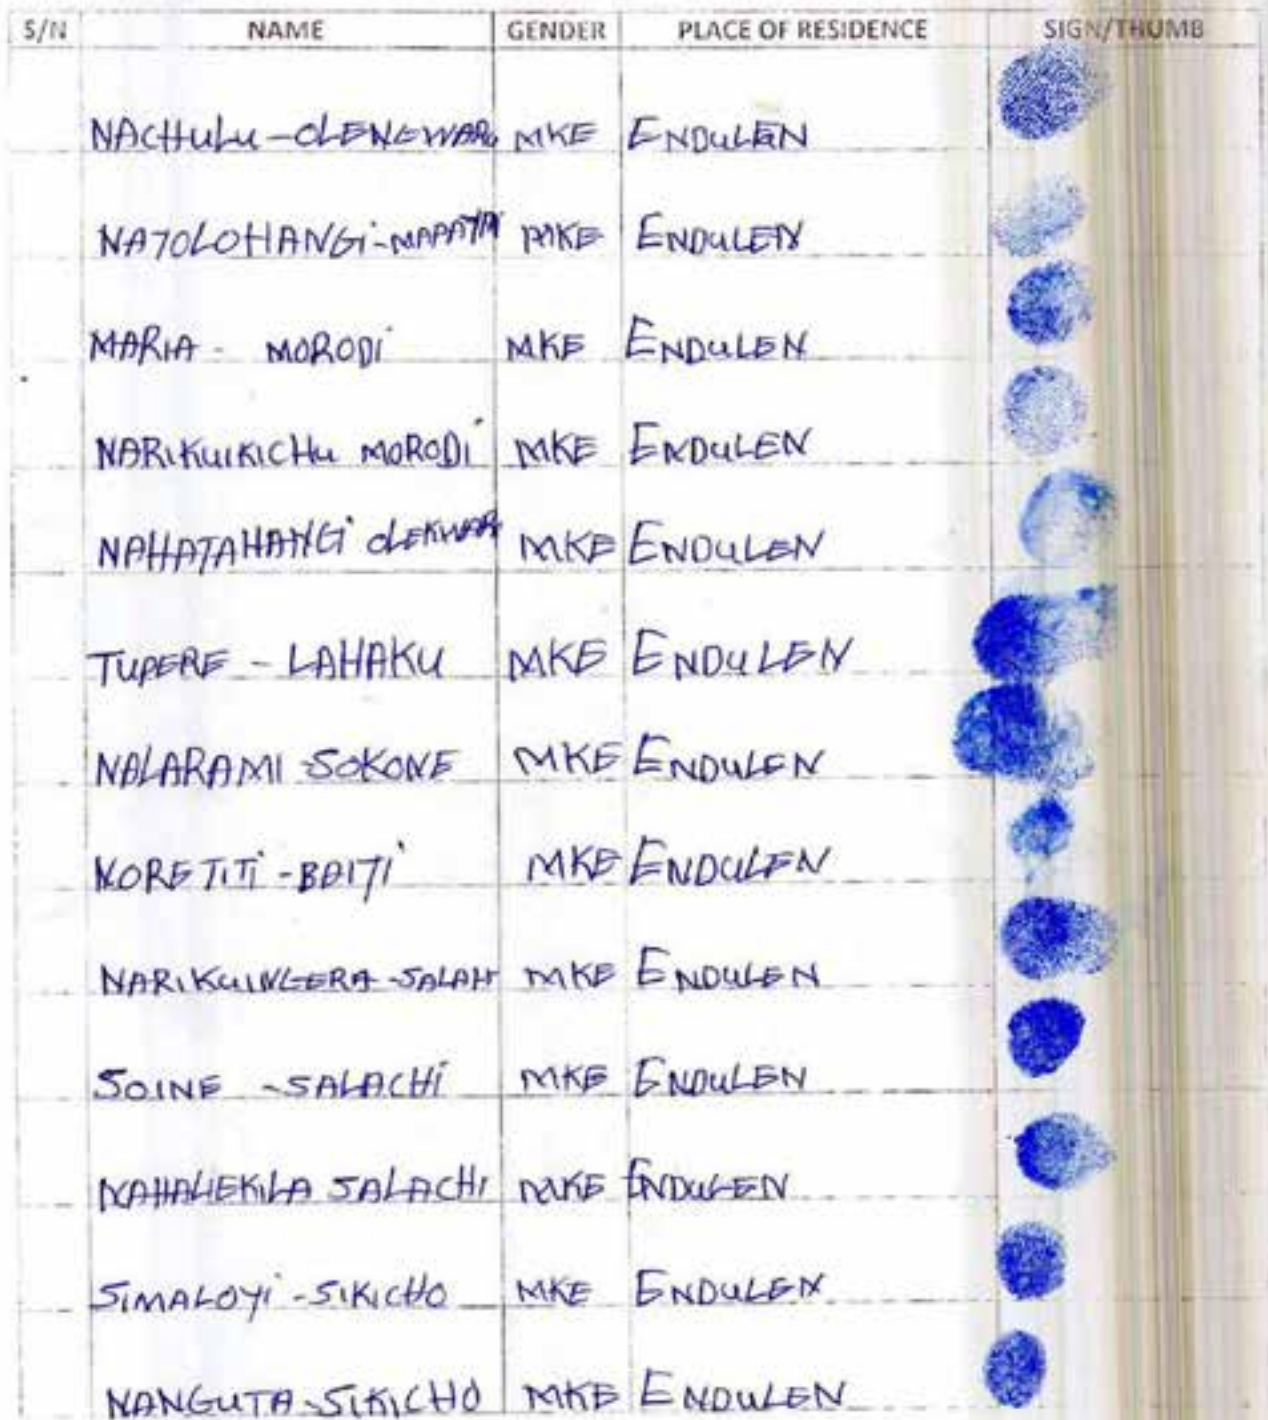 S/N NAME GENDER PLACE OF RESIDENCE SIGN/THUMB
NACHULU-OLENGWARU MKE ENDULEN
NATOLOHANGi-MAPATAI MKE ENDULEN
MARIA - MORODi MKE ENDULEN
NARIKUIKICHU MORODi MKE ENDULEN
NAHATAHANGi OLEKWARE MKE ENDULEN
TUPERE - LAHAKU MKE ENDULEN
NALARAMI-SOKONE MKE ENDULEN
NORETITi-BAITi MKE ENDULEN
NARIKUINGERA-SALAH MKE ENDULEN
SOINE -SALACHi MKE ENDULEN
NAHALIEKILA SALACHI MKE ENDULEN
SIMALOYi-SIKICHO MKE ENDULEN
NANGUTA-SIKICHO MKE ENDULEN